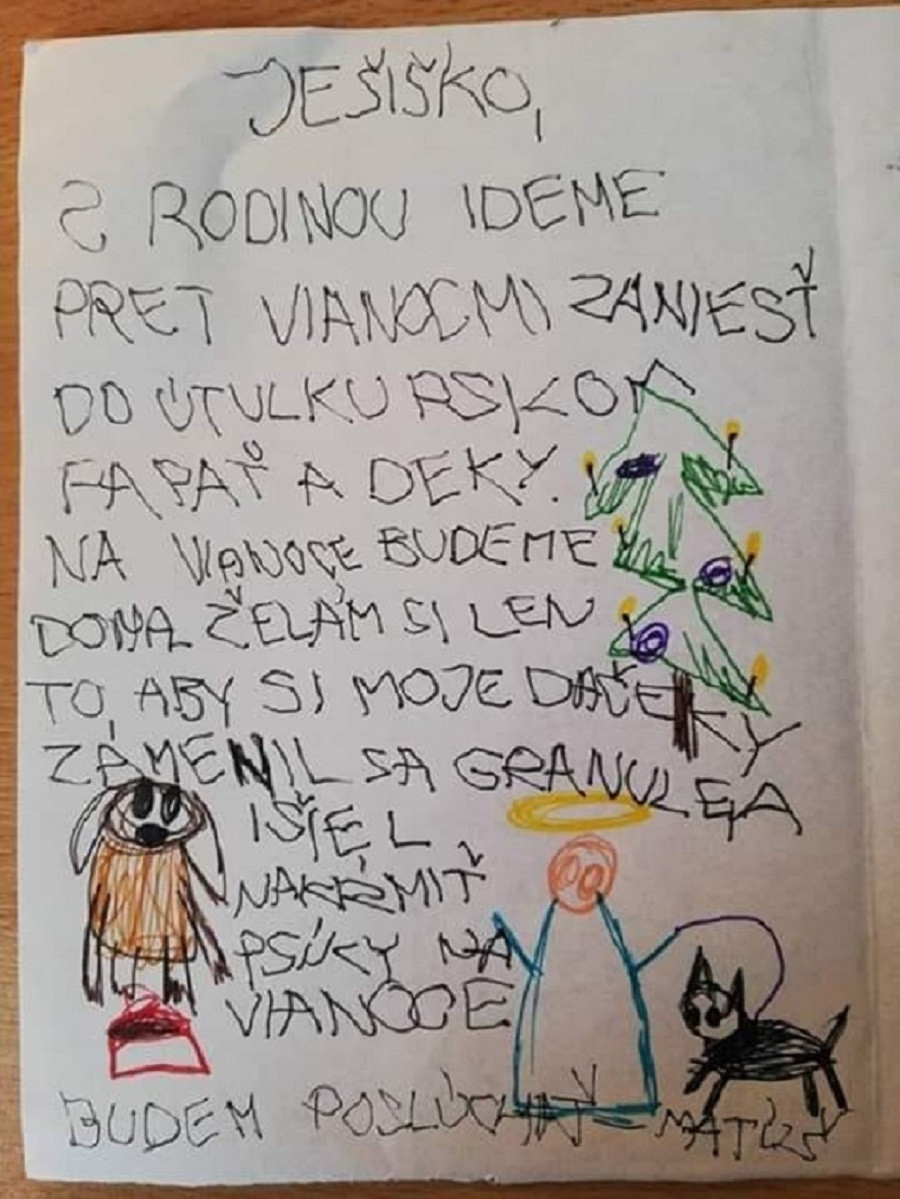 JEŠIŠKO,
S RODINOU IDEME
PRET VIANOCMI ZANIESŤ
DO ÚTULKU PSÍKOM
PAPAŤ A DEKY.
NA VIANOCE BUDEME
DOMA. ŽELÁM SI LEN
TO, ABY SI MOJE DAČEKY
ZAMENIL SA GRANULE A
IŠIEL
NAKŔMIŤ
PSÍKY NA
VIANOCE
BUDEM POSLÚCHAŤ - MATÚŠ